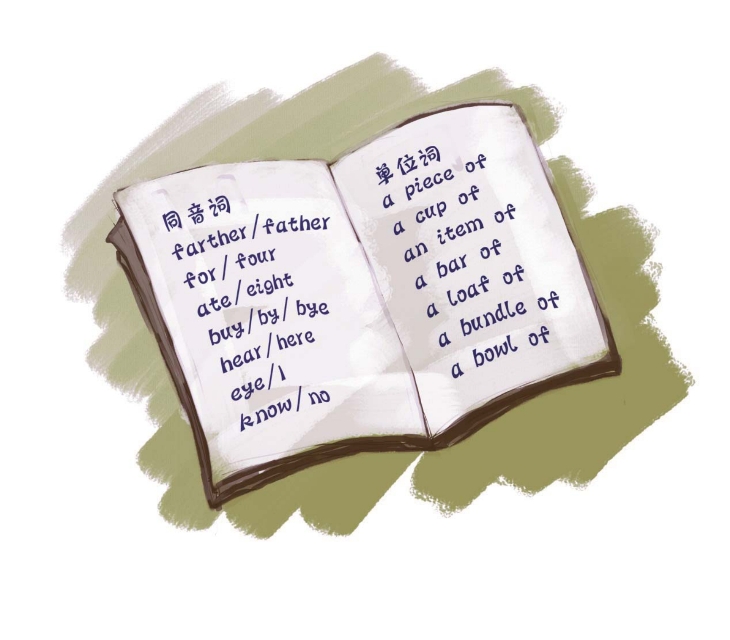 同音词
farther/father
for/four
ate/eight
buy/by/bye
hear/here
eye/I
know/no
单位词
a piece of
a cup of
an item of
a bar of
a loaf of
a bundle of
a bowl of